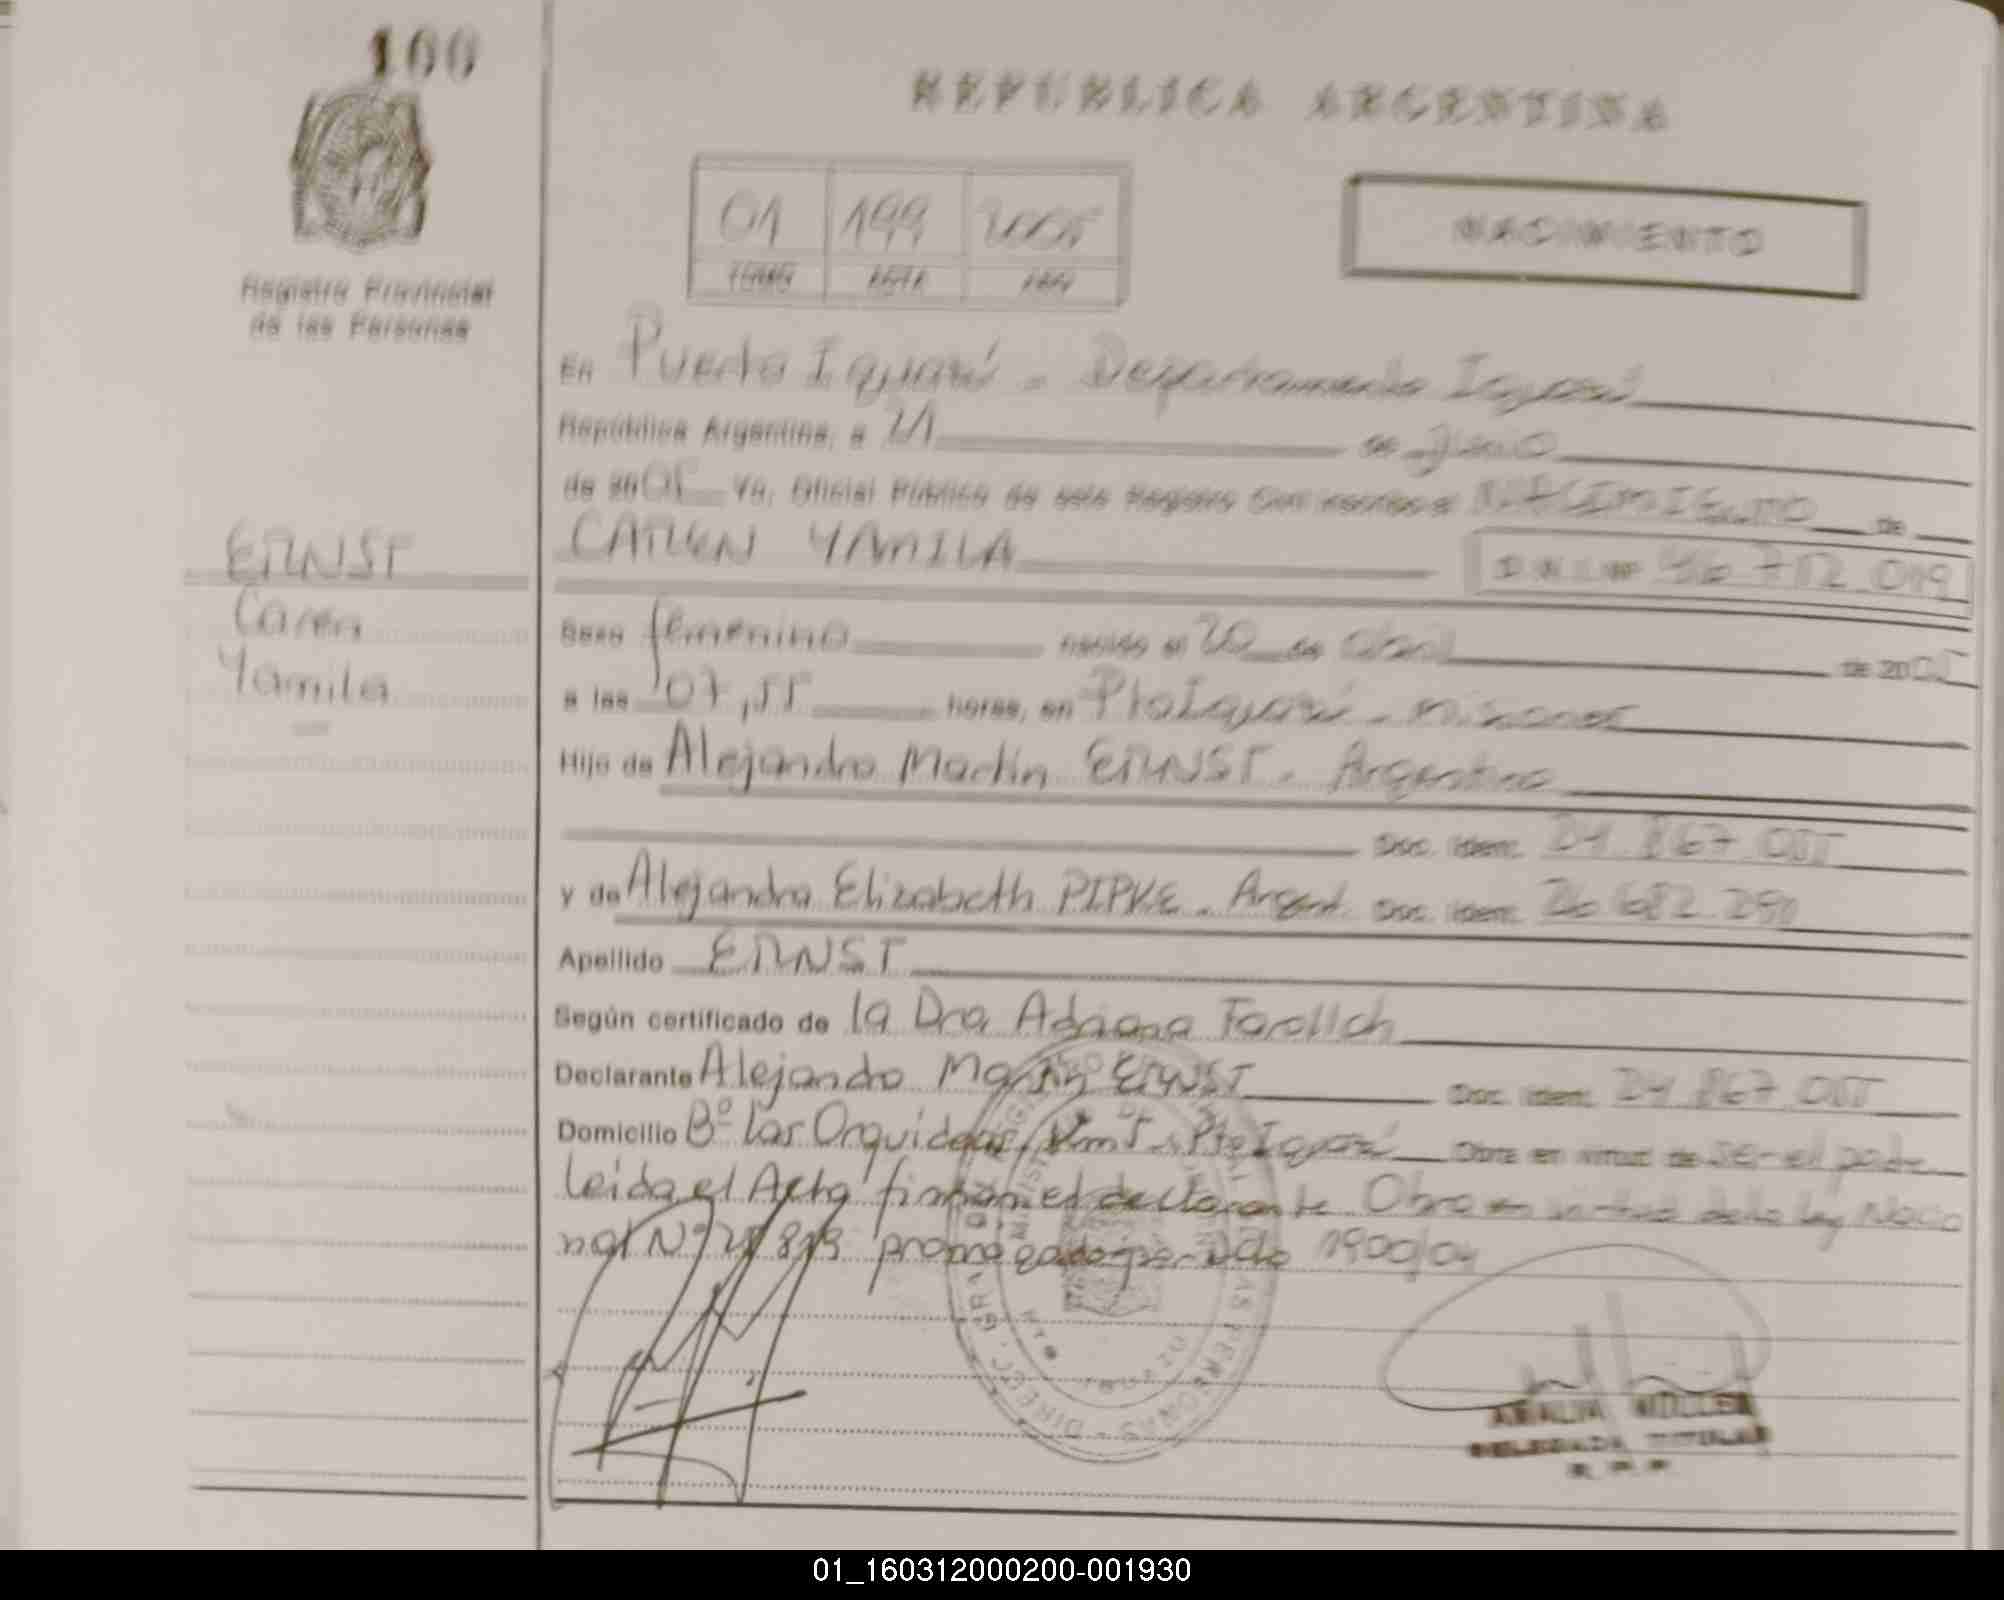 100
REPUBLICA ARGENTINA
01 199 2005
TOMO ACTA AÑO
NACIMIENTO
Registro Provincial
de las Personas
En Puerto Iguazú - Departamento Iguazú
República Argentina, a 21 de Junio
de 2005 Yo, Oficial Público de este Registro Civil inscribo el NACIMIENTO de
ERNST
Caren
Yamila
CAREN YAMILA D N I Nº 46 712 019
Sexo femenino nacido el 20 de abril de 2005
a las 07,55 horas, en Pto Iguazú - Misiones
Hijo de Alejandro Martín ERNST - Argentino
Doc. Ident. 24 867 055
y de Alejandra Elizabeth PIPKE - Argent. Doc. Ident. 26 682 290
Apellido ERNST
Según certificado de la Dra Adriana
Declarante Alejandro Martín ERNST Doc. Ident. 24 867 055
Domicilio Bº Las Orquideas, Km 5 - Pto Iguazú Obra en virtud de ser el padre
Leída el Acta firman el declarante Obra en virtud de la Ley Nacio
nal Nº 25 819 por Dcto 1900/04
AMALIA MULLER
DELEGADA TITULAR
R. P. P.
01_160312000200-001930